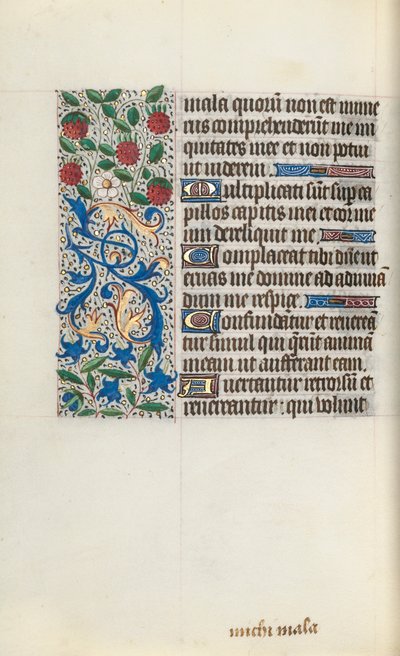 mala quorū non est nume
rus comprehenderūt me ini
quitates mee et non potui
ut uiderem.
Multiplicati sūt super ca
pillos capitis mei et cor me
um dereliquit me
Complaceat tibi dn̄e ut
eruas me domine ad adiuuā
dum me respice
Confundātur et reuereā
tur simul qui querūt animā
meam ut aufferant eam.
Auertantur retrorsū et
reuereantur : qui volunt
michi mala